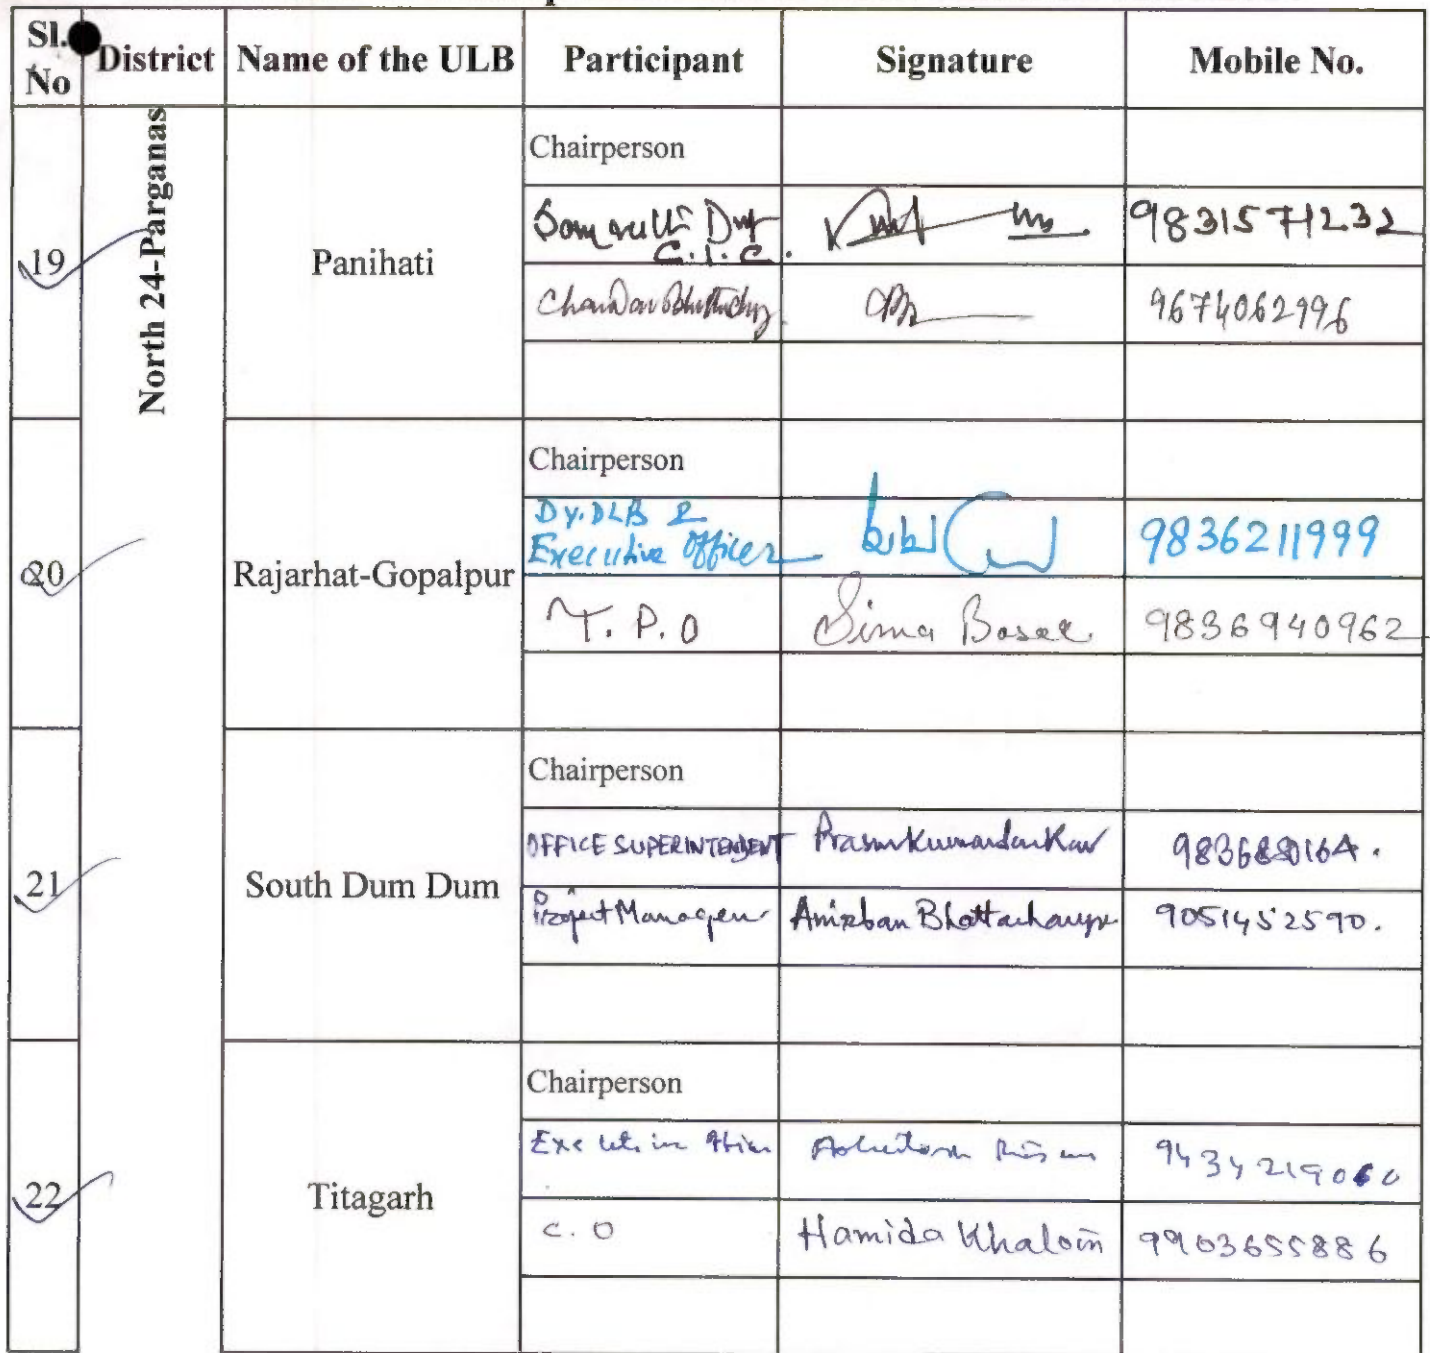 Sl. No District Name of the ULB Participant Signature Mobile No.
North 24-Parganas
19 Panihati
Chairperson
C.I.C. 9831571232
9674062996
20 Rajarhat-Gopalpur
Chairperson
Dy. DLB &
Executive Officer 9836211999
T. P. O Sima Basak 9836940962
21 South Dum Dum
Chairperson
OFFICE SUPERINTENDENT
Project Manager Anirban Bhattacharya 9051452590.
22 Titagarh
Chairperson
Executive Officer 9434219060
C. O Hamida Khatoin 9903655886